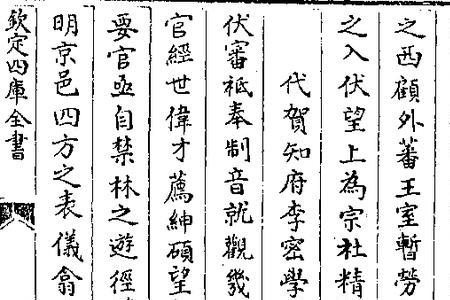 之西顧外蕃王室暫勞
之入伏望上為宗社精
代賀知府李密學
伏審祗奉制音就觀幾
官經世偉才薦紳碩望
要官亟自禁林之遊徑
明京邑四方之表儀翕
欽定四庫全書